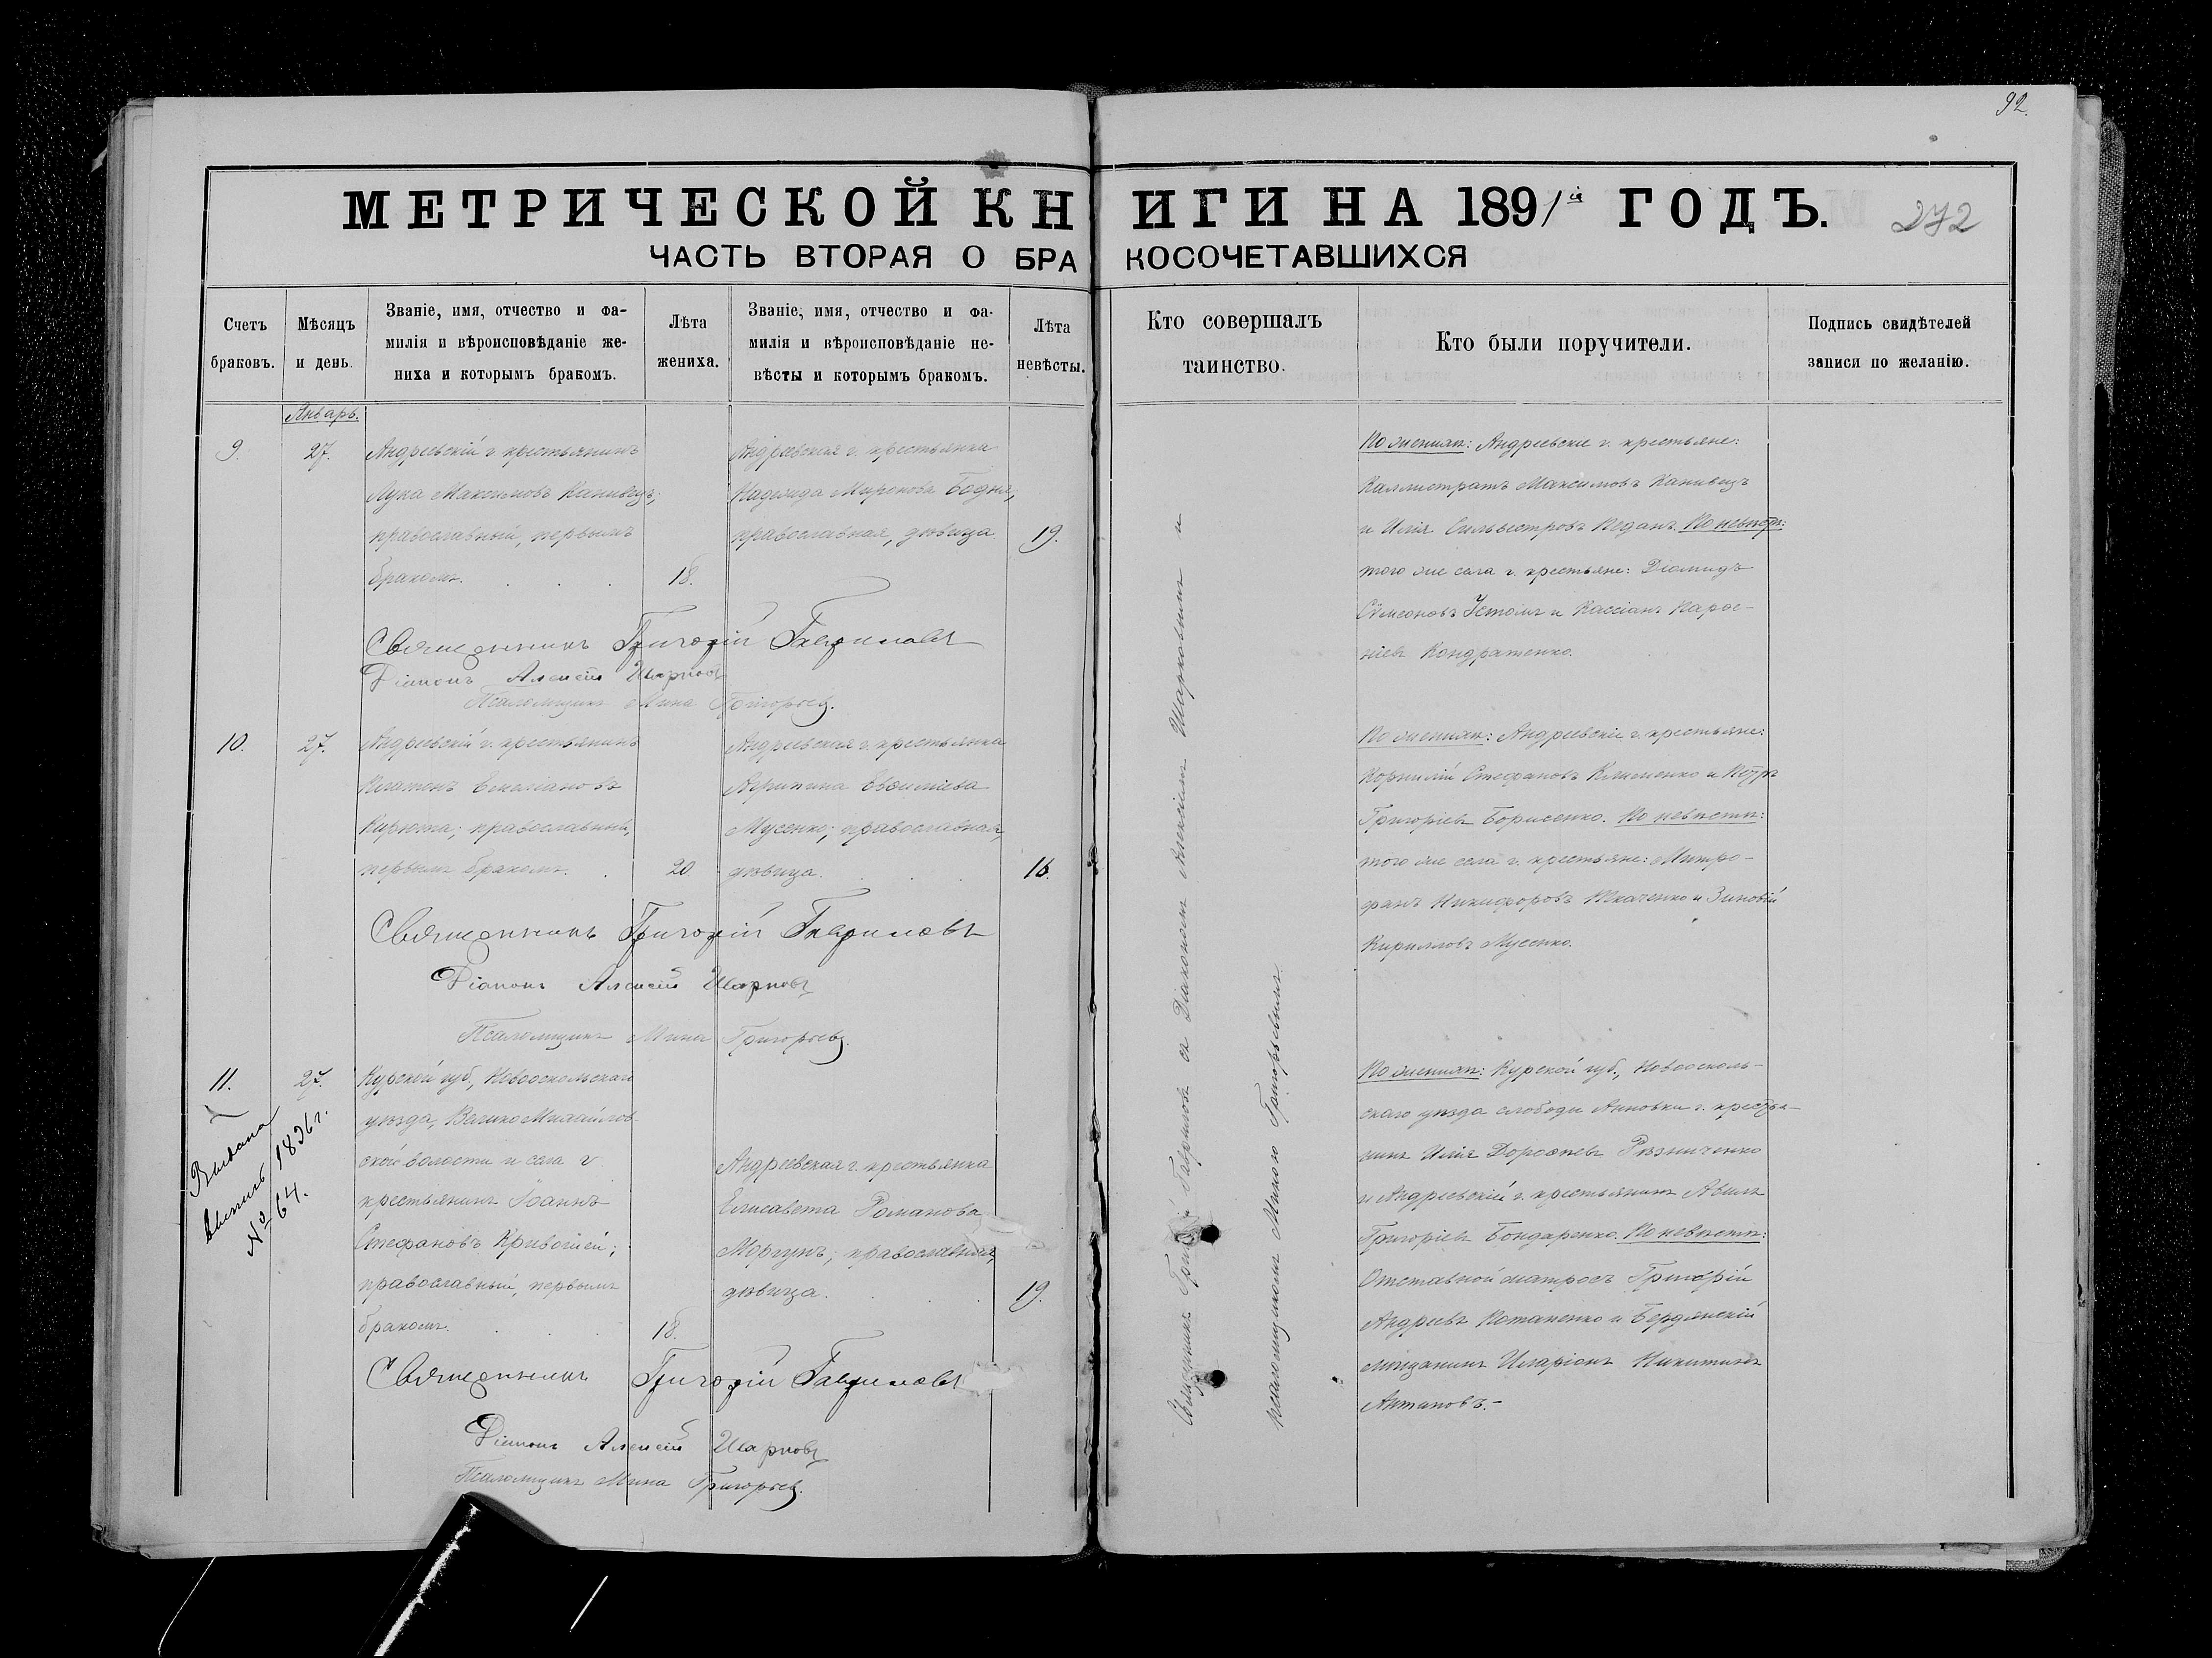 92.
МЕТРИЧЕСКОЙ КНИГИ НА 1891й ГОДЪ.
272
ЧАСТЬ ВТОРАЯ О БРАКОСОЧЕТАВШИХСЯ
Счетъ браковъ.
Мѣсяцъ и день.
Званіе, имя, отчество и фа-
милія и вѣроисповѣданіе же-
ниха и которымъ бракомъ.
Лѣта жениха.
Званіе, имя, отчество и фа-
милія и вѣроисповѣданіе не-
вѣсты и которымъ бракомъ.
Лѣта невѣсты.
Кто совершалъ
таинство.
Кто были поручители.
Подпись свидѣтелей
записи по желанію.
Январь.
9.
27.
Андреевскій г. крестьянинъ
Лука Максимовъ Канивецъ;
православный, первымъ
бракомъ.
18.
Андреевская г. крестьянка
Надежда Миронова Бодня,
православная, дѣвица
19.
По женихѣ: Андреевскіе г. крестьяне:
Каллистратъ Максимовъ Канивецъ
и Илія Сильвестровъ Педанъ. По невѣстѣ:
того же села г. крестьяне: Діомидъ
Симеоновъ и Кассіанъ Парѳе-
ніевъ Кондратенко.
Священникъ Григорій Гавриловъ
Діаконъ Алексій Шарковъ
Псаломщикъ Мина Григорьевъ.
10.
27.
Андреевскій г. крестьянинъ
Платонъ Емиліановъ
Кирюта; православный,
первымъ бракомъ.
20
Андреевская г. крестьянка
Агрипина Евѳиміева
Мусенко; православная,
дѣвица.
16.
По женихѣ: Андреевскіе г. крестьяне:
Корнилій Стефановъ Клименко и Петръ
Григоріевъ Борисенко. По невѣстѣ:
того же села г. крестьяне: Митро-
фанъ Никифоровъ Ткаченко и Зиновій
Кирилловъ Мусенко.
Священникъ Григорій Гавриловъ
Діаконъ Алексій Шарковъ
Псаломщикъ Мина Григорьевъ.
11.
Выдана
1896 г.
№ 64.
27.
Курской губ., Новооскольскаго
уѣзда, Велико Михайлов-
ской волости и села г.
крестьянинъ Іоаннъ
Стефановъ Кривошей;
православный, первымъ
бракомъ.
18.
Андреевская г. крестьянка
Елисавета Романова
Моргунъ; православная,
дѣвица.
19.
По женихѣ: Курской губ., Новоосколь-
скаго уѣзда слободы Анновки г. крестья-
нинъ Илія Дороѳеевъ Рѣзниченко
и Андреевскій г. крестьянинъ Авимъ
Григоріевъ Бондаренко. По невѣстѣ:
Отставной матросъ Григорій
Андреевъ Потапенко и Бердянскій
мѣщанинъ Иларіонъ Никитинъ
Антановъ.-
Священникъ Григорій Гавриловъ
Діаконъ Алексій Шарковъ
Псаломщикъ Мина Григорьевъ.
Священникъ Григорій Гавриловъ съ Діакономъ Алексіемъ Шарковымъ и
псаломщикомъ Миною Григорьевымъ